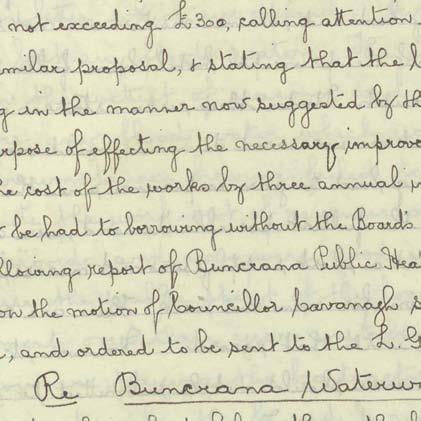 not exceeding £300, calling attention
milar proposal, & stating that the l
g in the manner now suggested by th
rpose of effecting the necessary improve
he cost of the works by three annual i
t be had to borrowing without the Boards
llowing report of Buncrana Public Hea
on the motion of Councillor Cavanagh s
, and ordered to be sent to the L. G
Re Buncrana Waterw